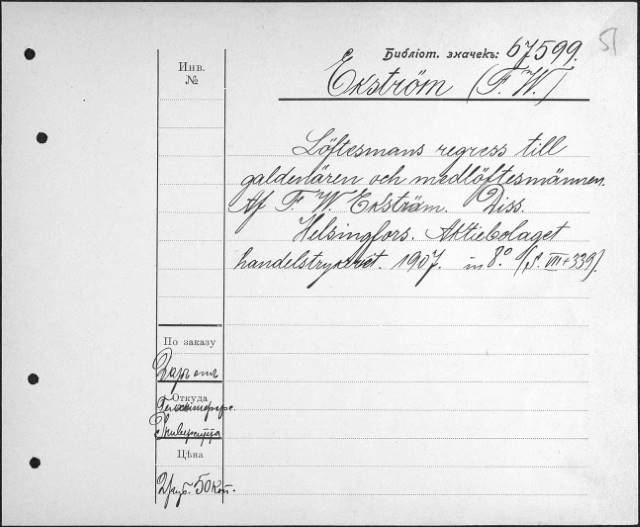 51
Библіот. значекъ: 67599.
Инв.
№
Ekström (F. W.)
Löftesmans regress till
galdenären och medlöftesmännen.
Af F. W. Ekström. Diss.
Helsingfors. Aktiebolaget
handelstryckeriet. 1907. in 8.º (S. VIII+339).
По заказу
Даръ отъ
Откуда
Гельсингфорс.
Университета
Цѣна
2 руб. 50 коп.